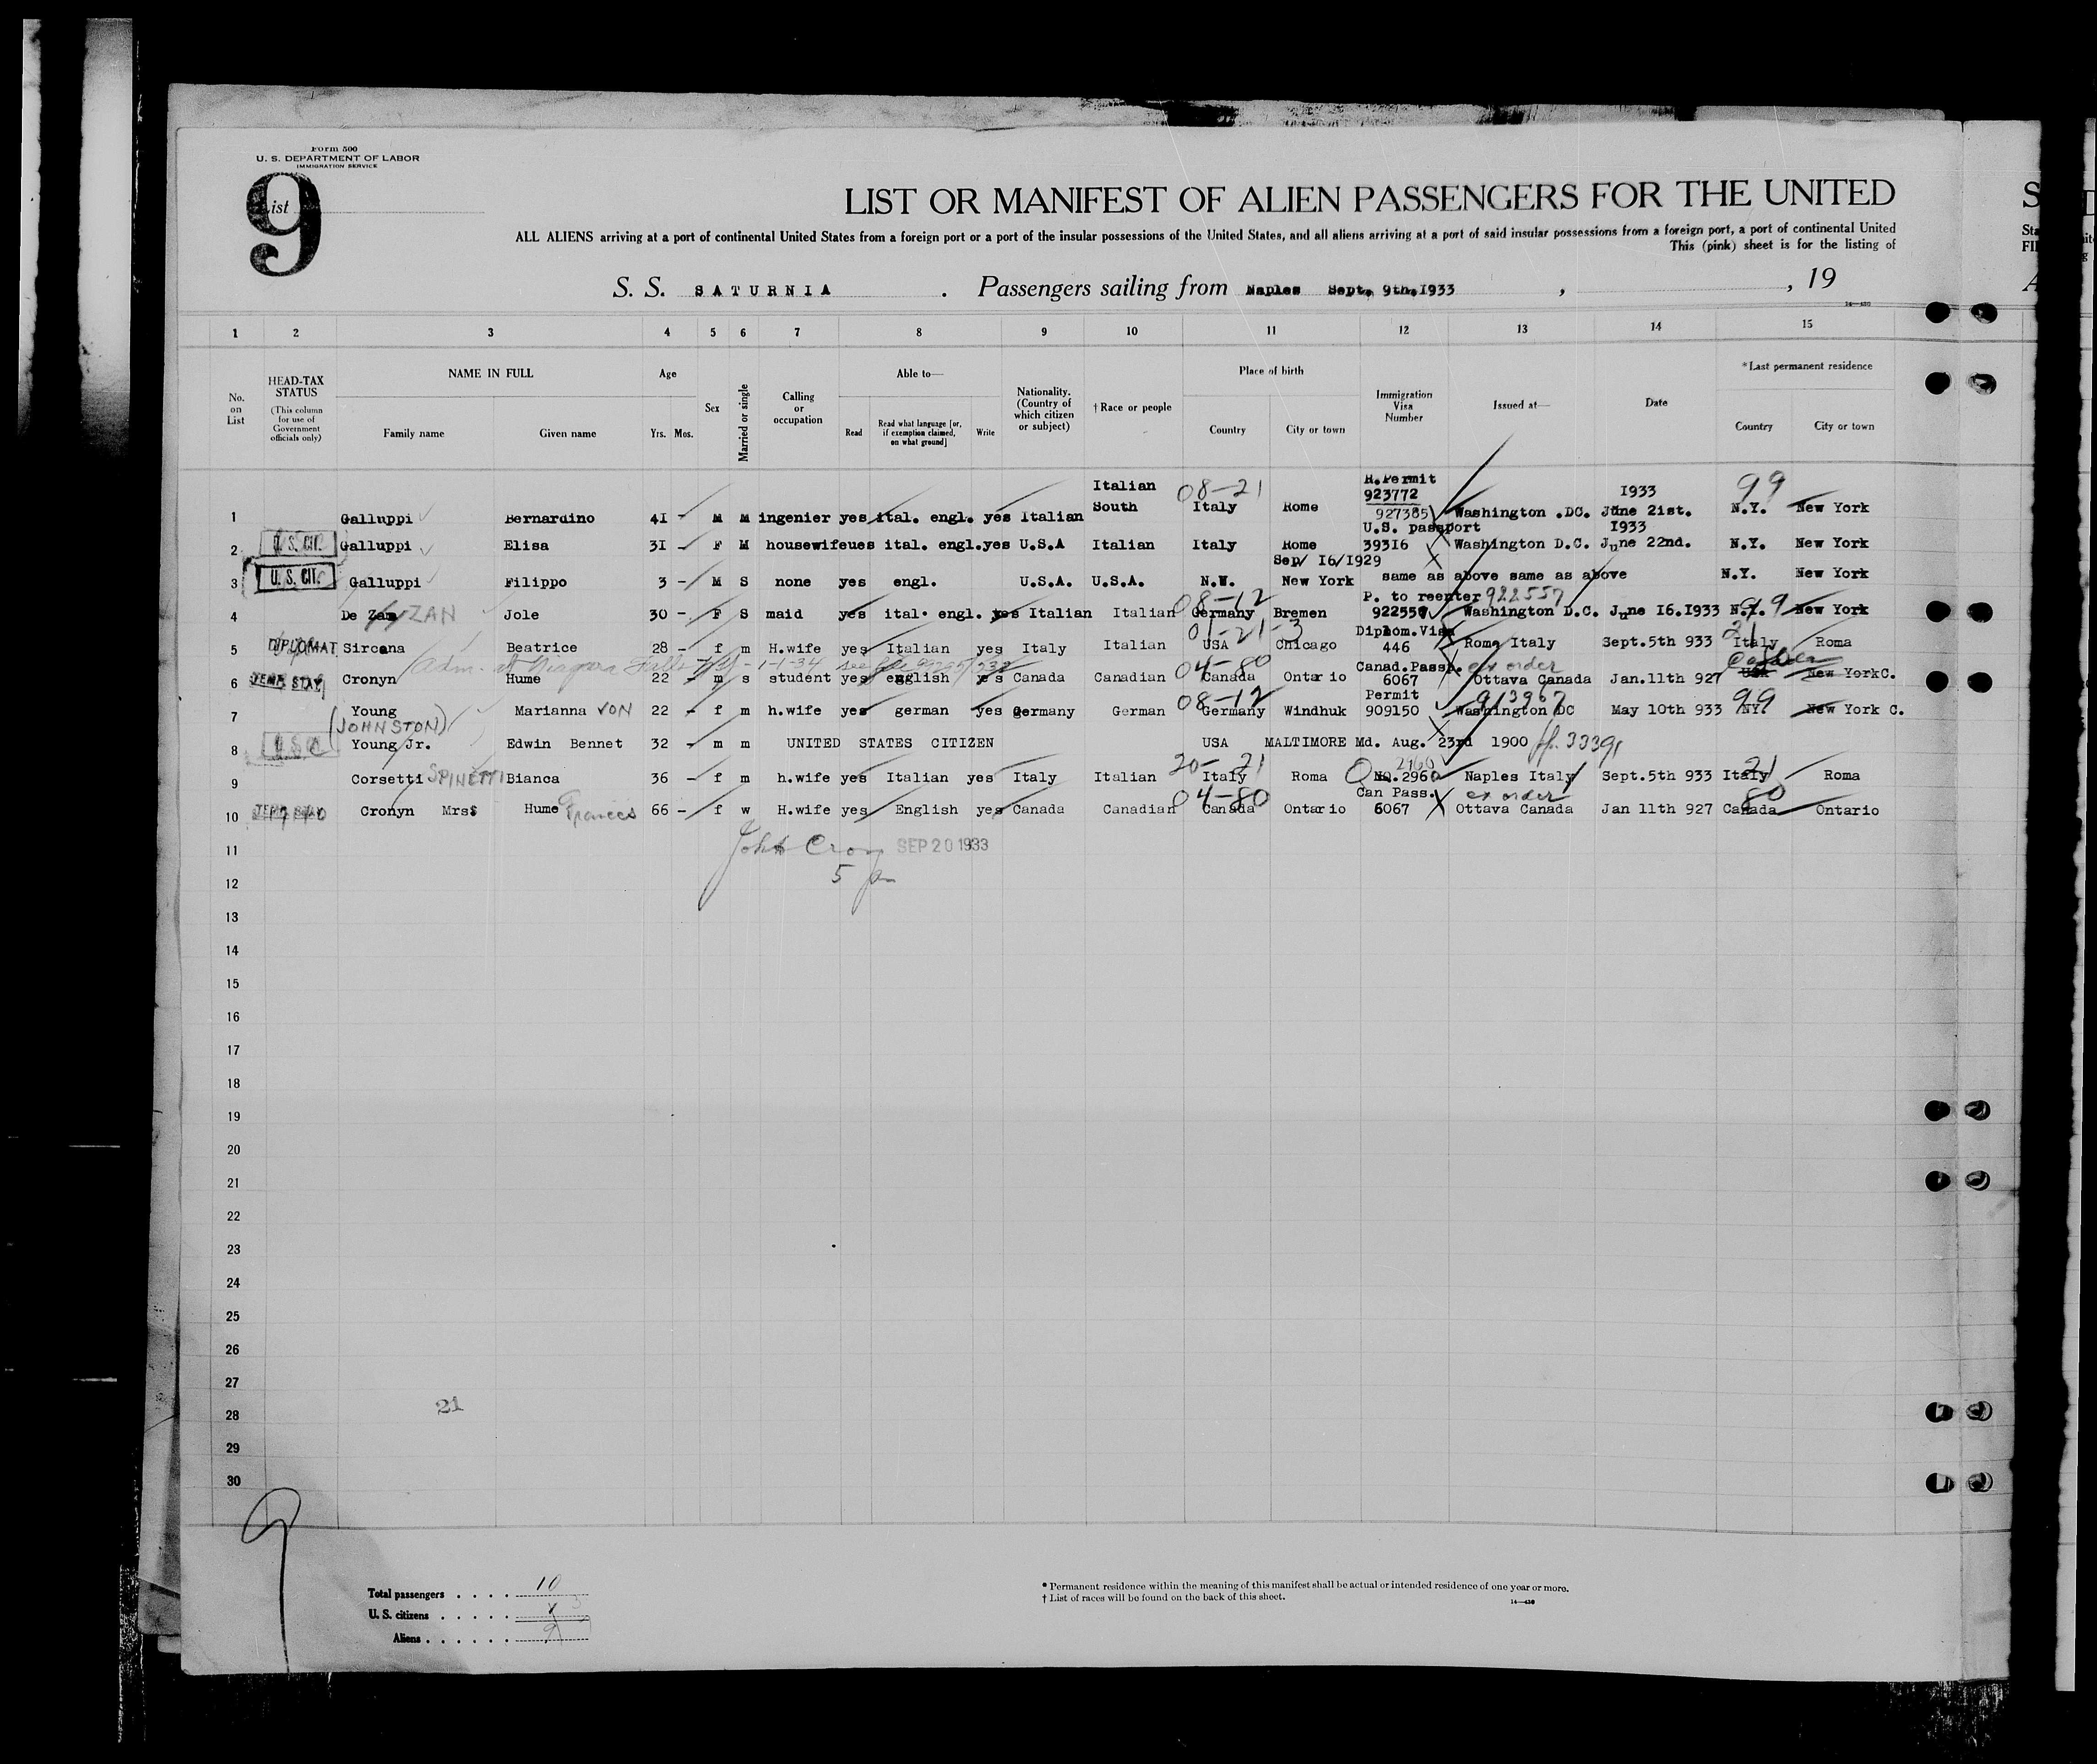 Form 500
U. S. DEPARTMENT OF LABOR
IMMIGRATION SERVICE
List 9
LIST OR MANIFEST OF ALIEN PASSENGERS FOR THE UNITED
ALL ALIENS arriving at a port of continental United States from a foreign port or a port of the insular possessions of the United States, and all aliens arriving at a port of said insular possessions from a foreign port, a port of continental United
This (pink) sheet is for the listing of
S. S. SATURNIA . Passengers sailing from Naples Sept. 9th.I933 , , 19
14—430
1 2 3 4 5 6 7 8 9 10 11 12 13 14 15
No. on List
HEAD-TAX STATUS
(This column for use of Government officials only)
NAME IN FULL
Family name Given name
Age
Yrs. Mos.
Sex
Married or single
Calling or occupation
Able to—
Read
Read what language [or, if exemption claimed, on what ground]
Write
Nationality. (Country of which citizen or subject)
† Race or people
Place of birth
Country City or town
Immigration Visa Number
Issued at—
Date
*Last permanent residence
Country City or town
Italian 08-21 R.Permit 923772 I933 99
1 Galluppi Bernardino 4I M M ingenier yes ital. engl. yes Italian South Italy Rome 927385 Washington .DC. June 2ist. N.Y. New York
U.S. passport I933
2 U. S. CIT. Galluppi Elisa 3I F M housewife ues ital. engl. yes U.S.A Italian Italy Rome 39316 Washington D.C. June 22nd. N.Y. New York
Sep/ I6/1929
3 U. S. CIT. Galluppi Filippo 3 M S none yes engl. U.S.A. U.S.A. N.W. New York same as above same as above N.Y. New York
08-12 P. to reenter 922557
4 De Zan ZAN Jole 30 F S maid yes ital. engl. yes Italian Italian Germany Bremen 922557 Washington D.C. June I6.I933 N.Y. 99 New York
01-21-3 Diplom.Visa 21
5 DIPLOMAT Sircana Beatrice 28 f m H.wife yes Italian yes Italy Italian USA Chicago 446 Roma Italy Sept.5th 933 Italy Roma
Adm. at Niagara Falls NY - 1-1-34 see file
04-80 Canad.Passp. ex order Canada
6 TEMP. STAY Cronyn Hume 22 m s student yes english yes Canada Canadian Canada Ontario 6067 Ottava Canada Jan.11th 927 USA New York C.
08-12 Permit 913967
7 Young Marianna VON 22 f m h.wife yes german yes Germany German Germany Windhuk 909150 Washington DC May 10th 933 NY. 99 New York C.
(JOHNSTON)
8 U.S.C. Young Jr. Edwin Bennet 32 m m UNITED STATES CITIZEN USA MALTIMORE Md. Aug. 23rd 1900
20-21 2960 21
9 Corsetti SPINETTI Bianca 36 f m h.wife yes Italian yes Italy Italian Italy Roma No.2960 Naples Italy Sept.5th 933 Italy Roma
04-80 Can Pass. ex order 80
10 TEMP. STAY Cronyn Mrs Hume Frances 66 f w H.wife yes English yes Canada Canadian Canada Ontario 6067 Ottava Canada Jan 11th 927 Canada Ontario
11 John Cron SEP 20 1933
12 5
13
14
15
16
17
18
19
20
21
22
23
24
25
26
27
28 21
29
30
9
Total passengers . . . . 10
U. S. citizens . . . . . 3
Aliens . . . . . .
* Permanent residence within the meaning of this manifest shall be actual or intended residence of one year or more.
† List of races will be found on the back of this sheet.
14—430